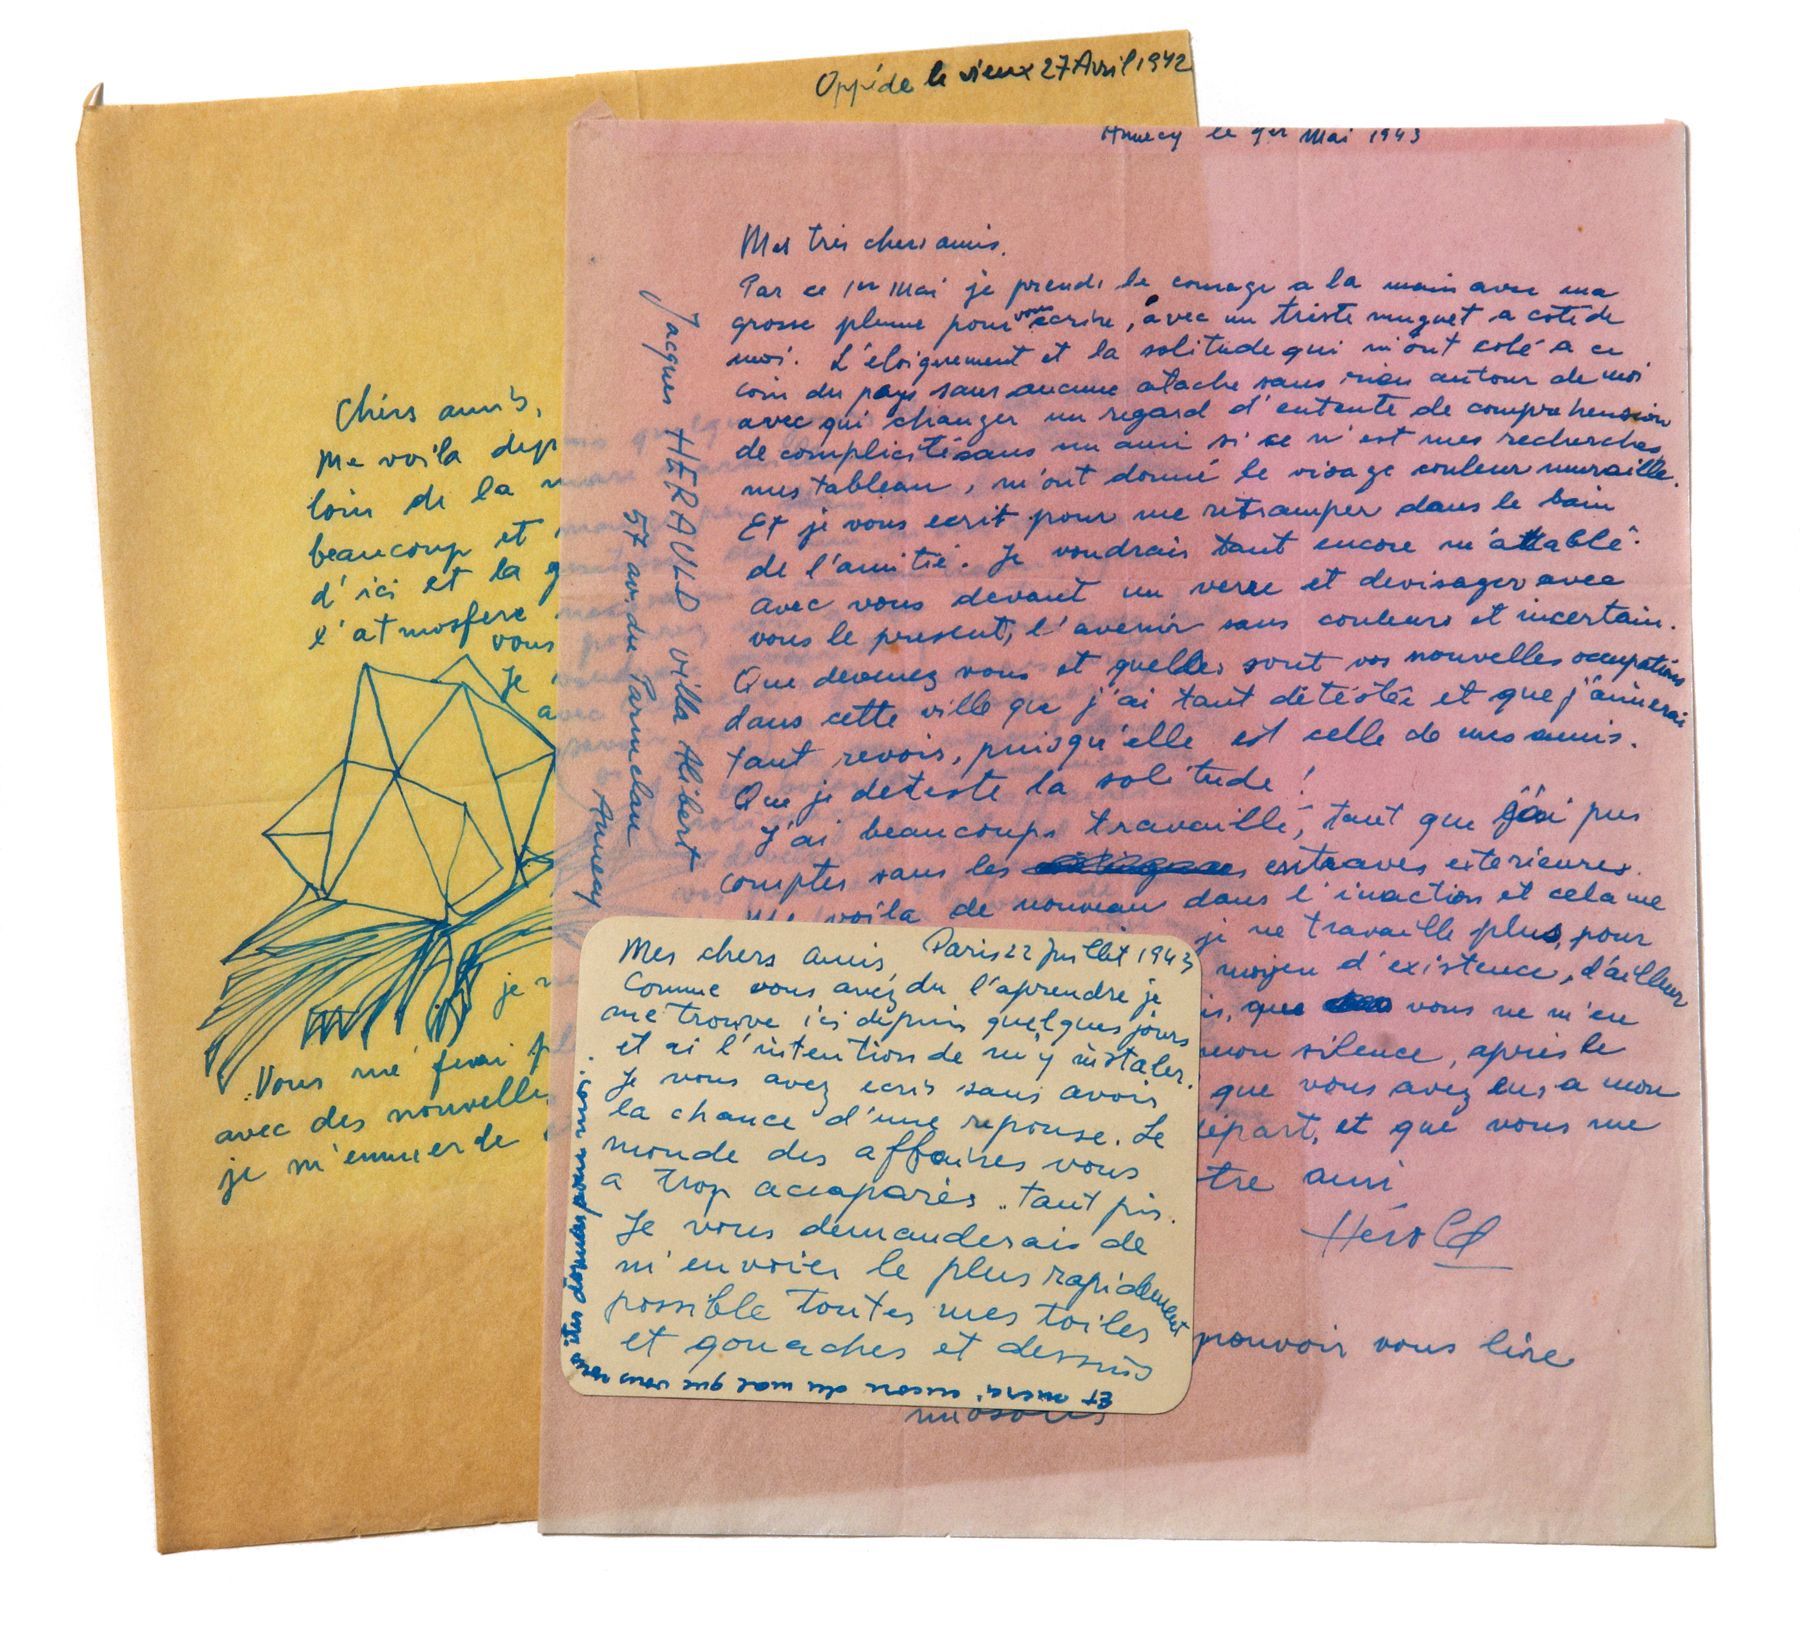 Oppède le vieux 27 Avril 1942
Chers amis,
Me voila dep
loin de la
beaucoup et
d'ici et la
l'atmosfere
vous
Je
a
je
Vous me ferai
avec des nouvelles
je m'ennuer de
Annecy le 1er Mai 1943
Mes très chers amis.
Par ce 1er Mai je prends le courage a la main avec ma
grosse plume pour vous écrire, avec un triste muguet a coté de
moi. L'éloignement et la solitude qui m'ont colé a ce
coin du pays sans aucune atache sans rien autour de moi
avec qui changer un regard d'entente de comprehension
de complicité sans un ami si ce n'est mes recherches,
mes tableau, m'ont donné le visage couleur muraille.
Et je vous ecrit pour me retramper dans le bain
de l'amitié. Je voudrais tant encore m'attablé
avec vous devant un verre et devisager avec
vous le present, l'avenir sans couleurs et incertain.
Que devenez vous et quelles sont vos nouvelles occupations
dans cette ville que j'ai tant détéstée et que j'aimerai
tant revois, puisqu'elle est celle de mes amis.
Que je deteste la solitude !
J'ai beaucoups travaillé, tant que j'ai pus
comptes sans les entraves exterieures.
Me voila de nouveau dans l'inaction et cela me
je ne travaille plus, pour
moyen d'existence, d'ailleur
is, que vous ne m'en
mon silence, après le
que vous avez eu, a mon
départ, et que vous me
tre ami
Hérold
pouvoir vous lire
Jacques HERAULD villa Alibert
57 av. du Parmelan
Annecy
Mes chers amis, Paris 22 Juillet 1943
Comme vous avez du l'aprendre je
me trouve ici depuis quelques jours
et ai l'intention de m'y installer.
Je vous avez ecris sans avoir
la chance d'une reponse. Le
monde des affaires vous
a trop accaparés.. tant pis.
Je vous demanderais de
m'envoier le plus rapidement
possible toutes mes toiles
et gouaches et dessins
Et merci encore du mal que vous
êtes donnés pour moi.